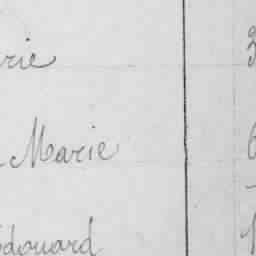 rie
Marie
Edouard